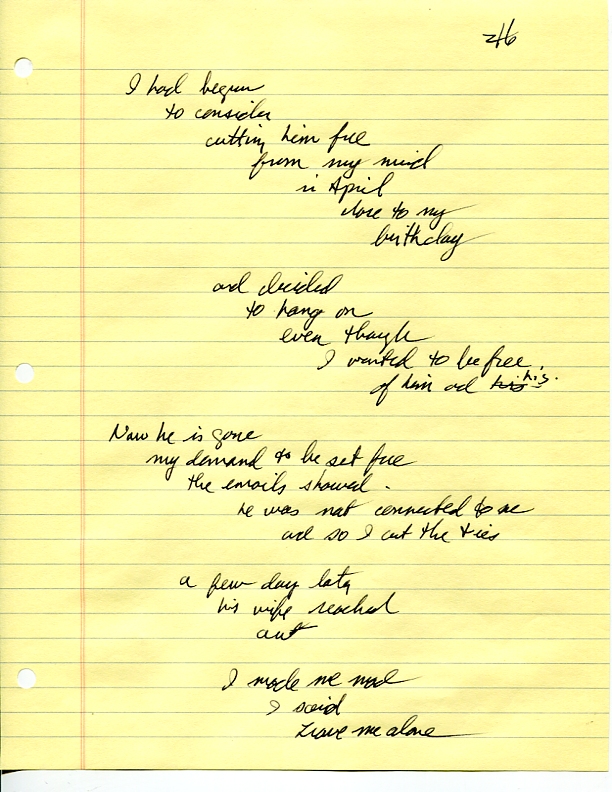 2/6
I had begun
to consider
cutting him free
from my mind
in April
close to my
birthday
and decided
to hang on
even though
I wanted to be free
of him and his his.
Now he is gone
my demand to be set free
the emails showed.
he was not connected to me
and so I cut the ties
a few day later
his wife reached
out
I made me mad
I said
Leave me alone